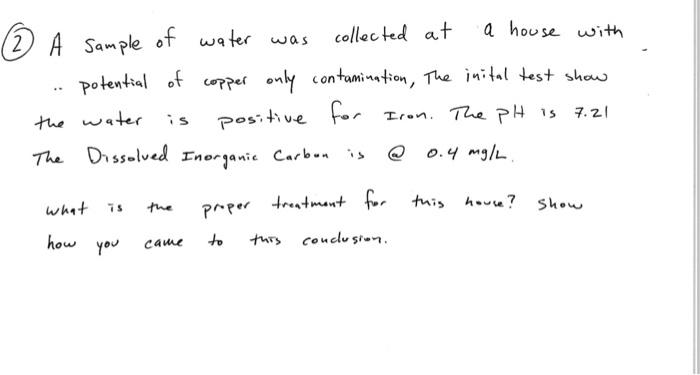 ② A Sample of water was collected at a house with
.. potential of copper only contamination, The inital test show
the water is positive for Iron. The pH is 7.21
The Dissolved Inorganic Carbon is @ 0.4 mg/L.
what is the proper treatment for this house? Show
how you came to this conclusion.